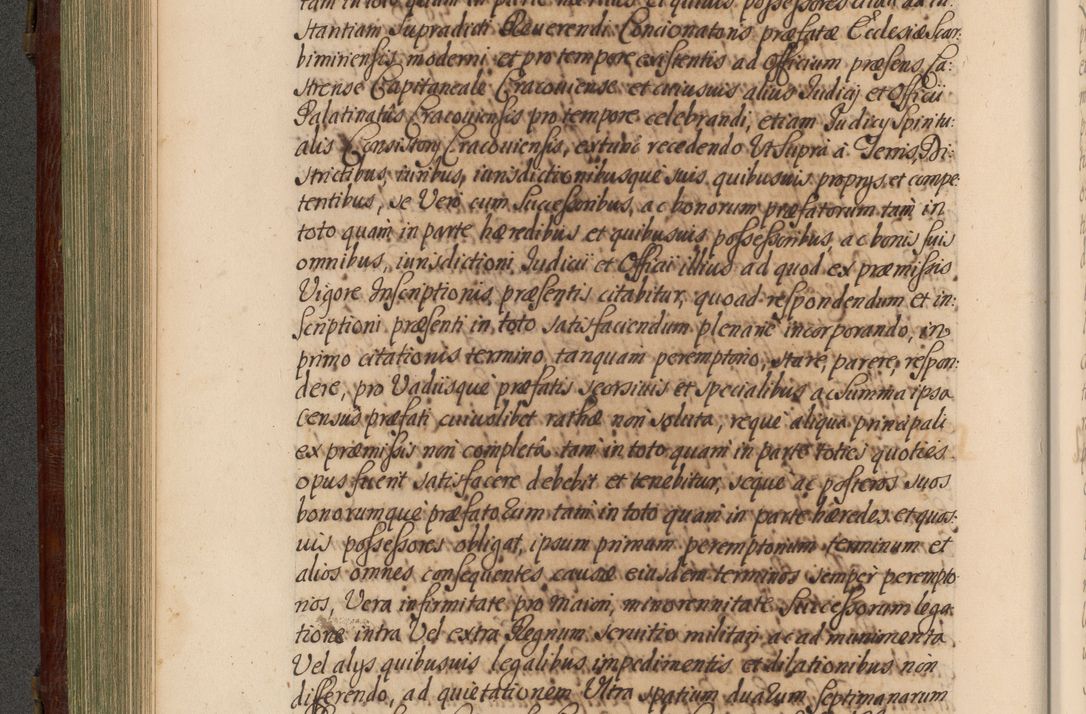 tam in toto quam in parte hæredes et quibus possessores citati ad in:
stantiam supradicti Reuerendi Concionatoris præfatæ Ecclesiæ Scar:
bimiriensis moderni et pro tempore existentis ad Officium præsens Ca:
strense Capitaneale Cracouiense et cuiusuis alius Iudicij et Officii
Palatinatus Cracouiensis pro tempore celebrandi, etiam Iudicij Spiritu:
alis Consistorij Cracouiensis, extunc recedendo Ut supra à Terris, Di:
strictibus, iuribus, iurisdictionibusque suis quibusuis proprijs et compe
tentibus, se Vero cum Successoribus, ac bonorum præfatorum tam in
toto quam in parte hæredibus et quibusuis possessoribus, ac bonis suis
omnibus, iurisdictioni Iudicii et Officii illius ad quod ex præmissis
Vigore Inscriptionis præsentis citabitur, quoad respondendum et in:
scriptioni præsenti in toto satisfaciendum plenarie incorporando, in
primo citationis termino tanquam peremptorio, stare, parere, respon:
dere, pro Vadiisque præfatis seorsiuis et specialibus ac summa ipsa
census præfati cuiuslibet rathæ non soluta, reque aliqua principali
ex præmissis non completâ tam in toto quam in parte toties quoties
opus fuerit satisfacere debebit et tenebitur, seque ac posteros suos
bonorumque præfatorum tam in toto quam in parte hæredes et quos:
uis possessores obligat, ipsum primum peremptorium terminum et
alios omnes consequentes causæ eiusdem terminos semper perempto
rios, Vera infirmitate pro maiori, minorennitate Successorum lega:
tione intra Vel extra Regnum seruitio militari ac ad munimenta
Vel alijs quibusuis legalibus impedimentis et dilationibus non
differendo, ad quietationem Ultra spatium duarum septimanarum